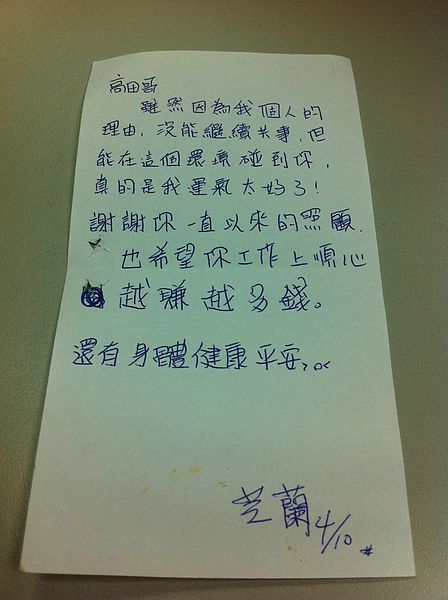 高田哥
雖然因為我個人的
理由，沒能繼續共事，但
能在這個環境碰到你，
真的是我運氣太好了！
謝謝你一直以來的照顧，
也希望你工作上順心
越賺越多錢。
還有身體健康平安。
芝蘭 4/10 #